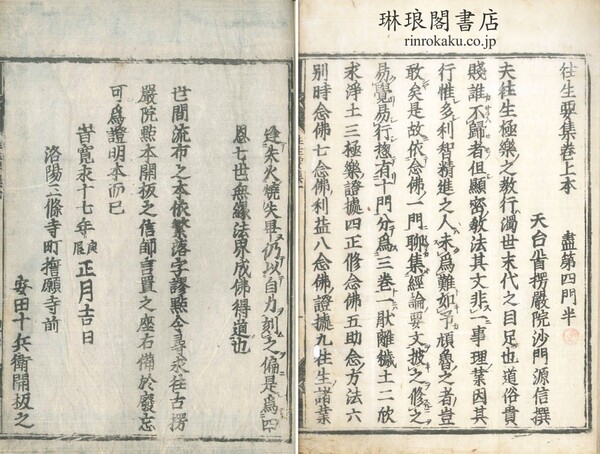 琳琅閣書店
rinrokaku.co.jp
往生要集卷上本　盡第四門半
天台首楞嚴院沙門源信撰
夫往生極樂之教行濁世末代之目足也道俗貴
賤誰不歸者但顯密教法其文非一事理業因其
行惟多利智精進之人未爲難如予頑魯之者豈
敢矣是故依念佛一門聊集經論要文披之修之
易覺易行惣有十門分爲三卷一猒離穢土二欣
求淨土三極樂證據四正修念佛五助念方法六
別時念佛七念佛利益八念佛證據九往生諸業
逢失火燒失畢仍以自力刻之偏是爲四
恩七世無縁法界成佛得道也
世間流布之本依繁落字謬點今尋求往古楞
嚴院點本開板之信師言置之座右備於廢忘
可爲證明本而已
旹寛永十七年庚辰正月吉日
洛陽三條寺町誓願寺前
安田十兵衛開板之